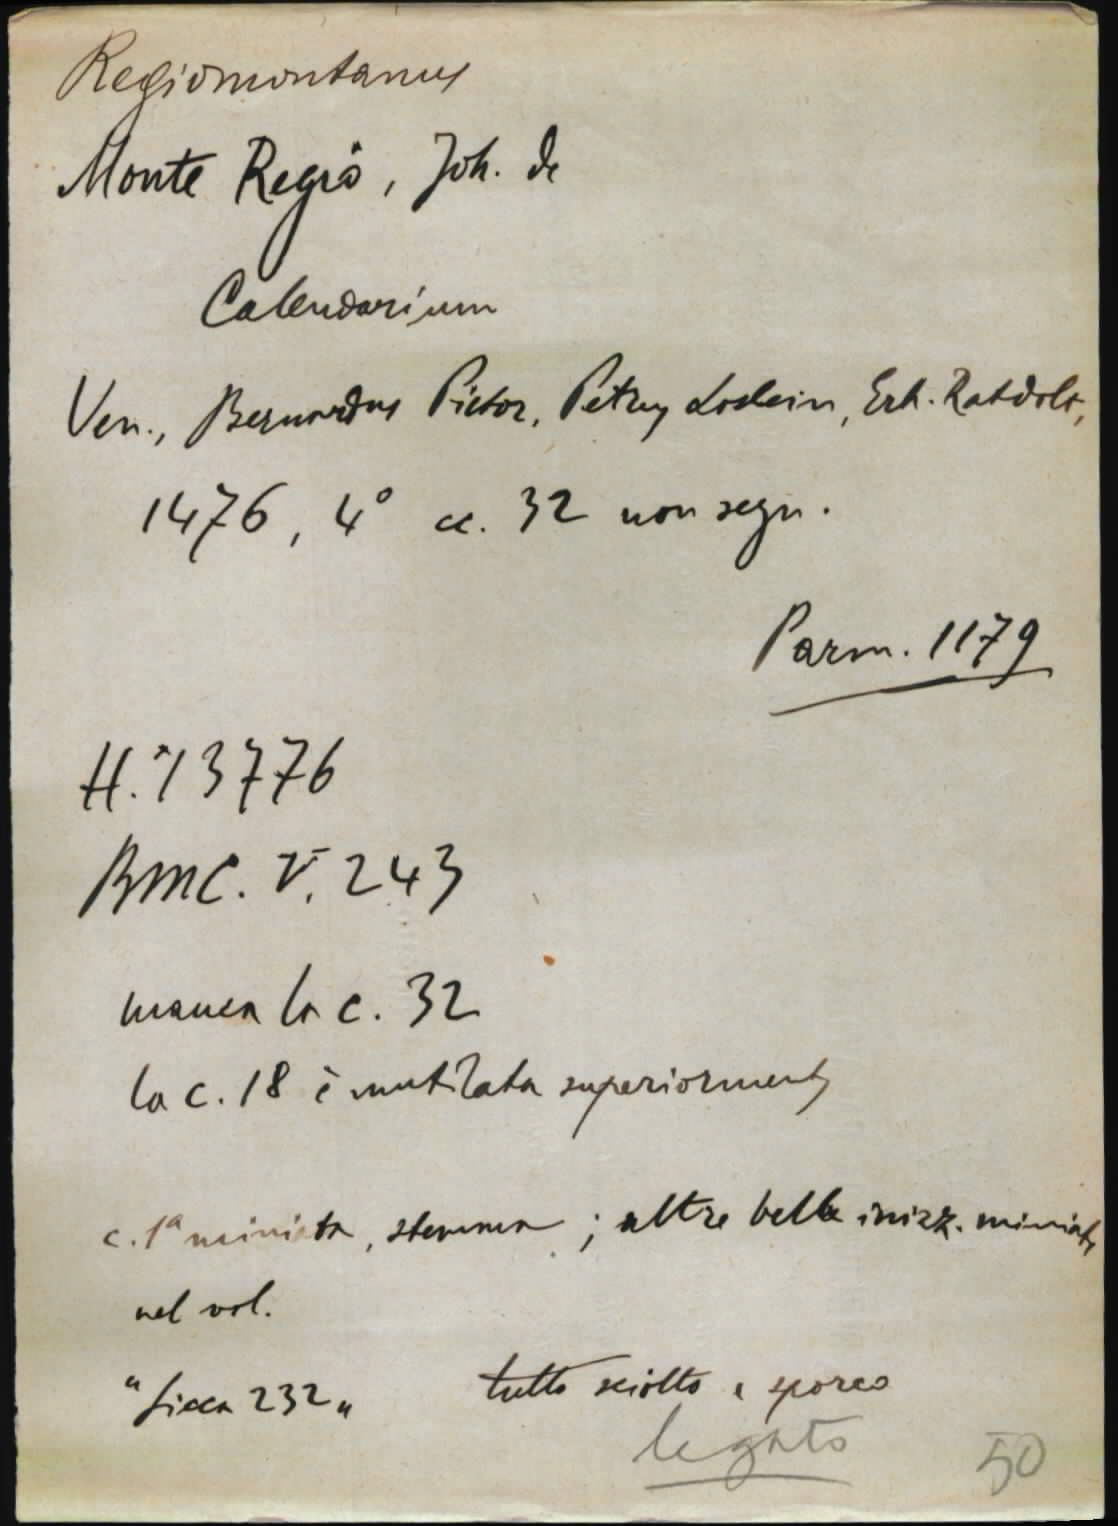 Regiomontanus
Monte Regio, Joh. de
Calendarium
Ven., Bernardus Pictor, Petrus Loslein, Erh. Ratdolt,
1476, 4° cc. 32 non segn.
Parm. 1179
H.*13776
BMC. V. 243
manca la c. 32
la c. 18 è mutilata superiormente
c. 1ª miniata, stemma ; altre belle inizz. miniate
nel vol.
" 232 "
tutto sciolto e sporco
legato
50